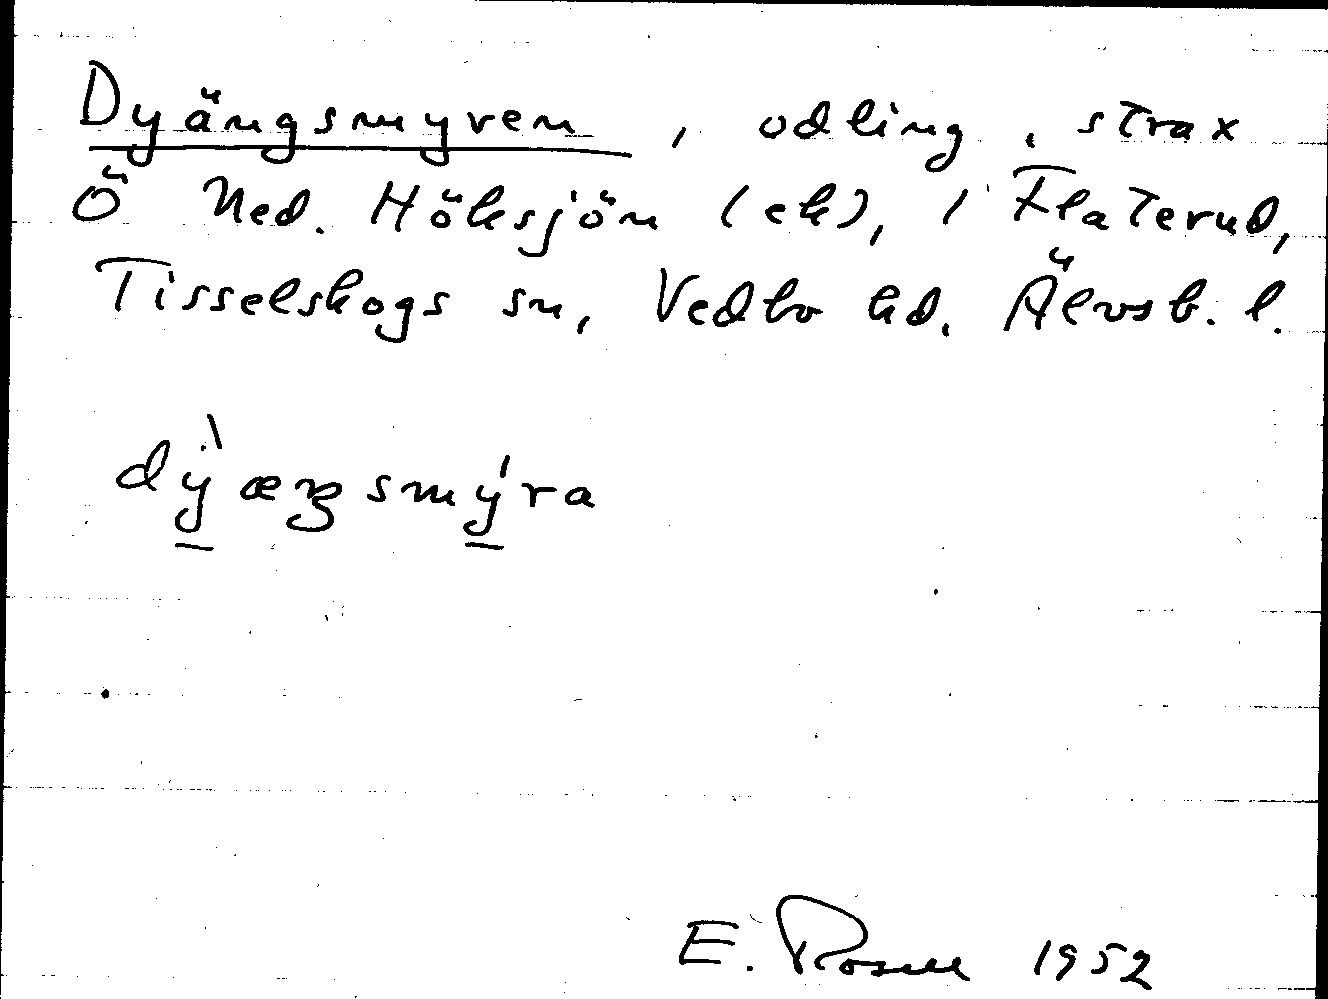 Dyängsmyren, odling, strax
Ö Ned. Höksjön (ek), i Flaterud,
Tisselskogs sn, Vedbo hd. Älvsb. l.
dỳæŋsmýra
E. Rosell 1952